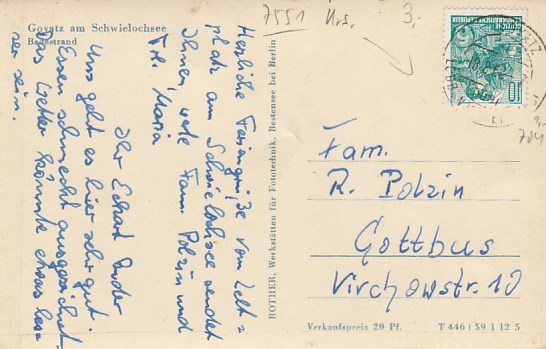 Goyatz am Schwielochsee
Badestrand
7551 Urs.
3.
Herzliche Feriengrüße vom Zelt=
platz am Schwielochsee sendet
Ihnen, werte Fam. Polzin und
Frl. Maria
Ihr Eckart
Uns geht es hier sehr gut.
Essen schmeckt ausgezeichnet.
Das Wetter könnte etwas bes=
ser sein.
ROTHER, Werkstätten für Fototechnik, Bestensee bei Berlin
10
DEUTSCHE
Fam.
R. Polzin
Cottbus
Virchowstr. 10
Verkaufspreis 20 Pf.
T 446 | 59 1 12 5